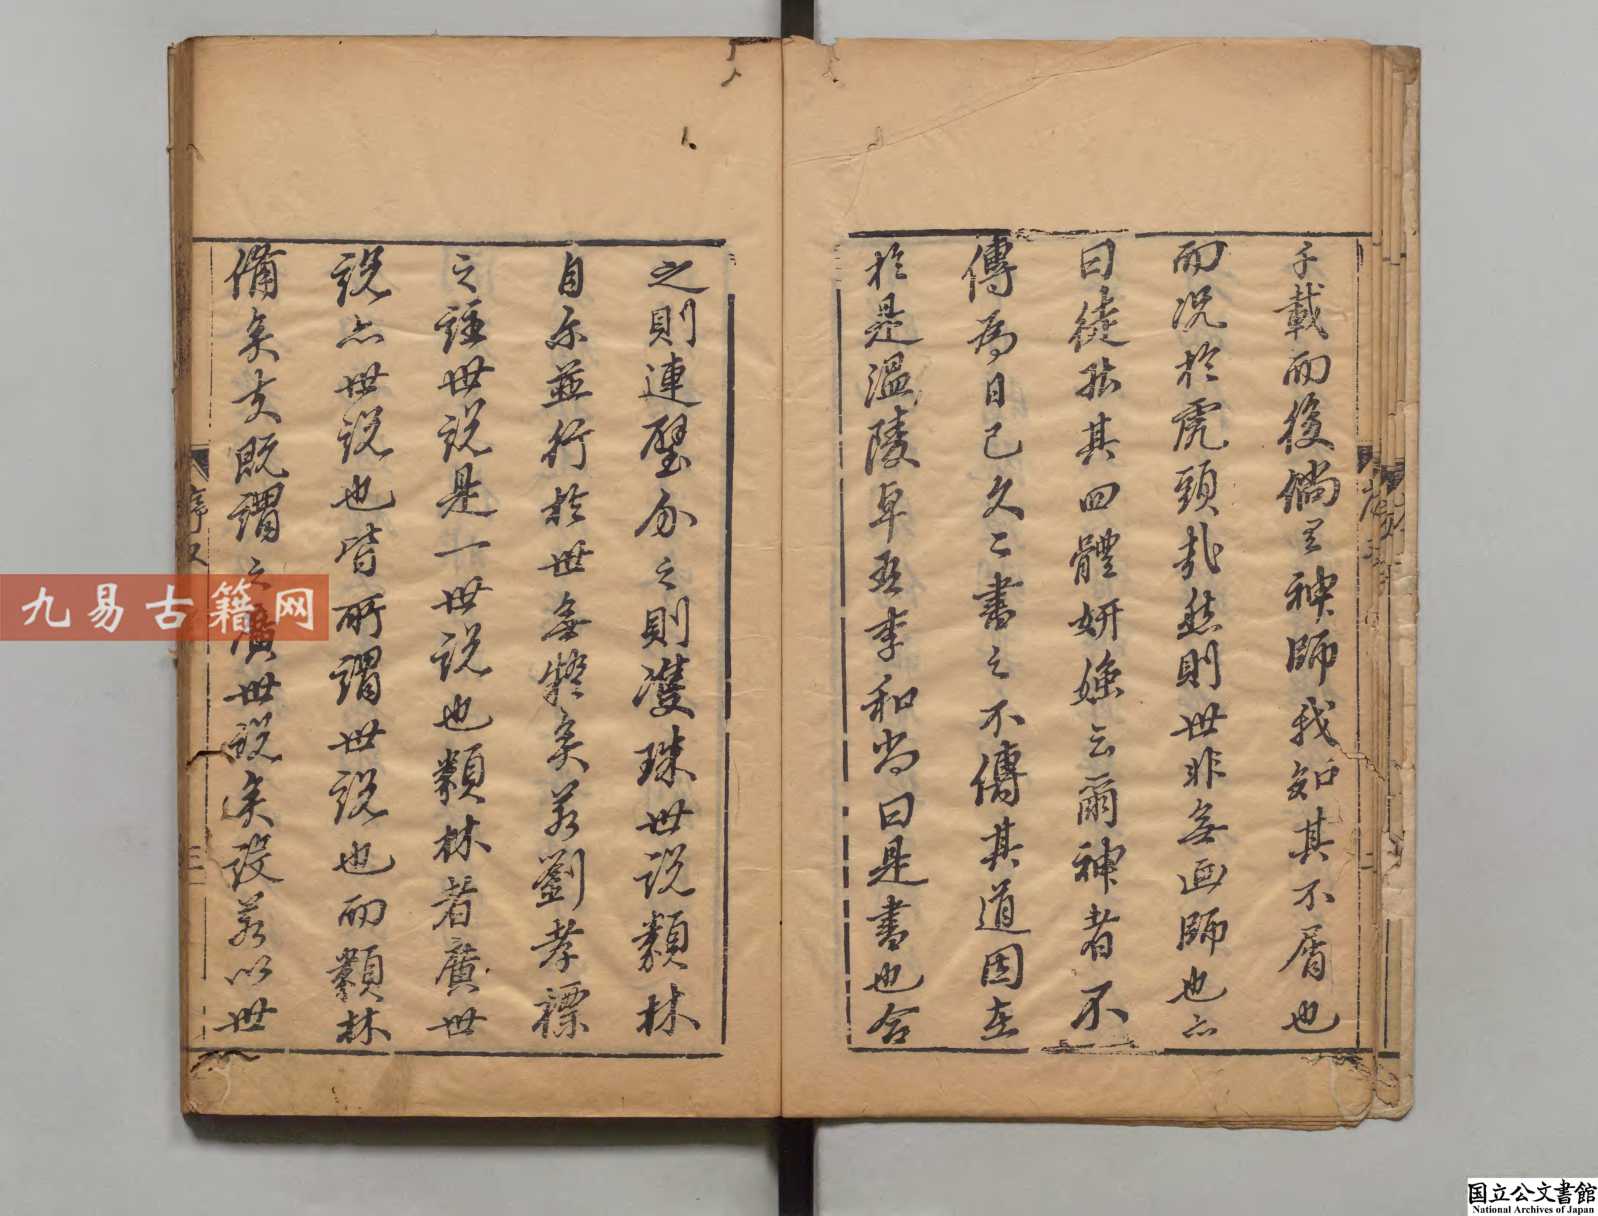 千載而後倘呈神師我知其不屑也
而况於虎頭哉然則世非無画師也亦
曰徒貌其四體妍媸云爾神者不
傳為日已久二書之不傳其道固在
於是溫陵卓吾李和尚曰是書也合
之則連璧分之則雙珠世説類林
自尔並行於世無弊矣若劉孝標
之註世説是一世説也類林者廣世
説亦世説也皆所謂世説也而類林
備矣夫既謂之廣世説矣設若以世
序又
三
九易古籍网
国立公文書館
National Archives of Japan